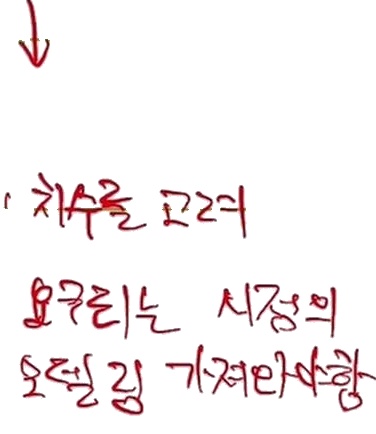 치수를 고려
요구되는 시점의
모델링 가져와야함